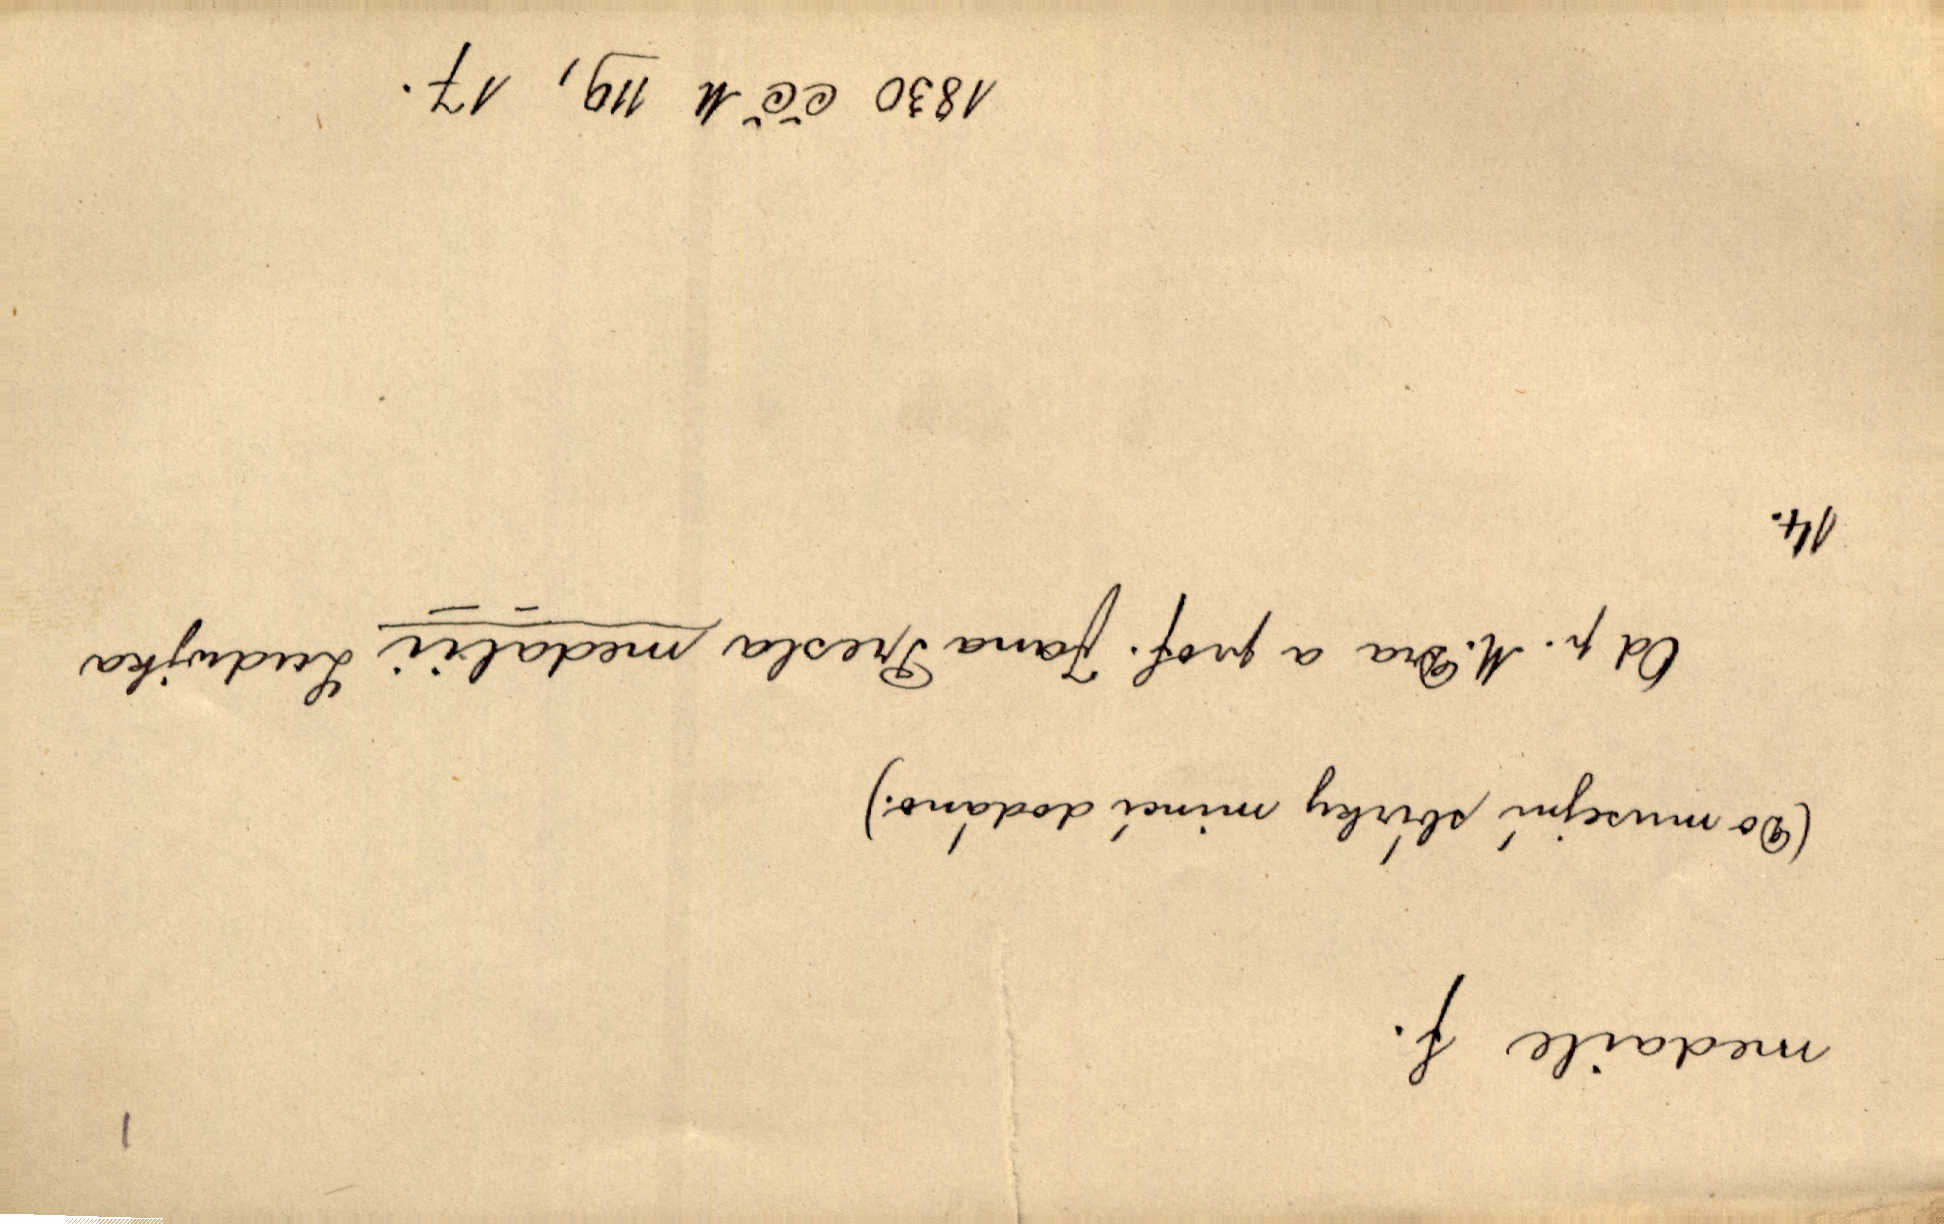 1
medaile f.
(Do musejní sbírky mincí dodáno.)
Od p. M. Dra a prof. Jana Presla medalii Ludwjka
14.
1830 čč M III9, 17.